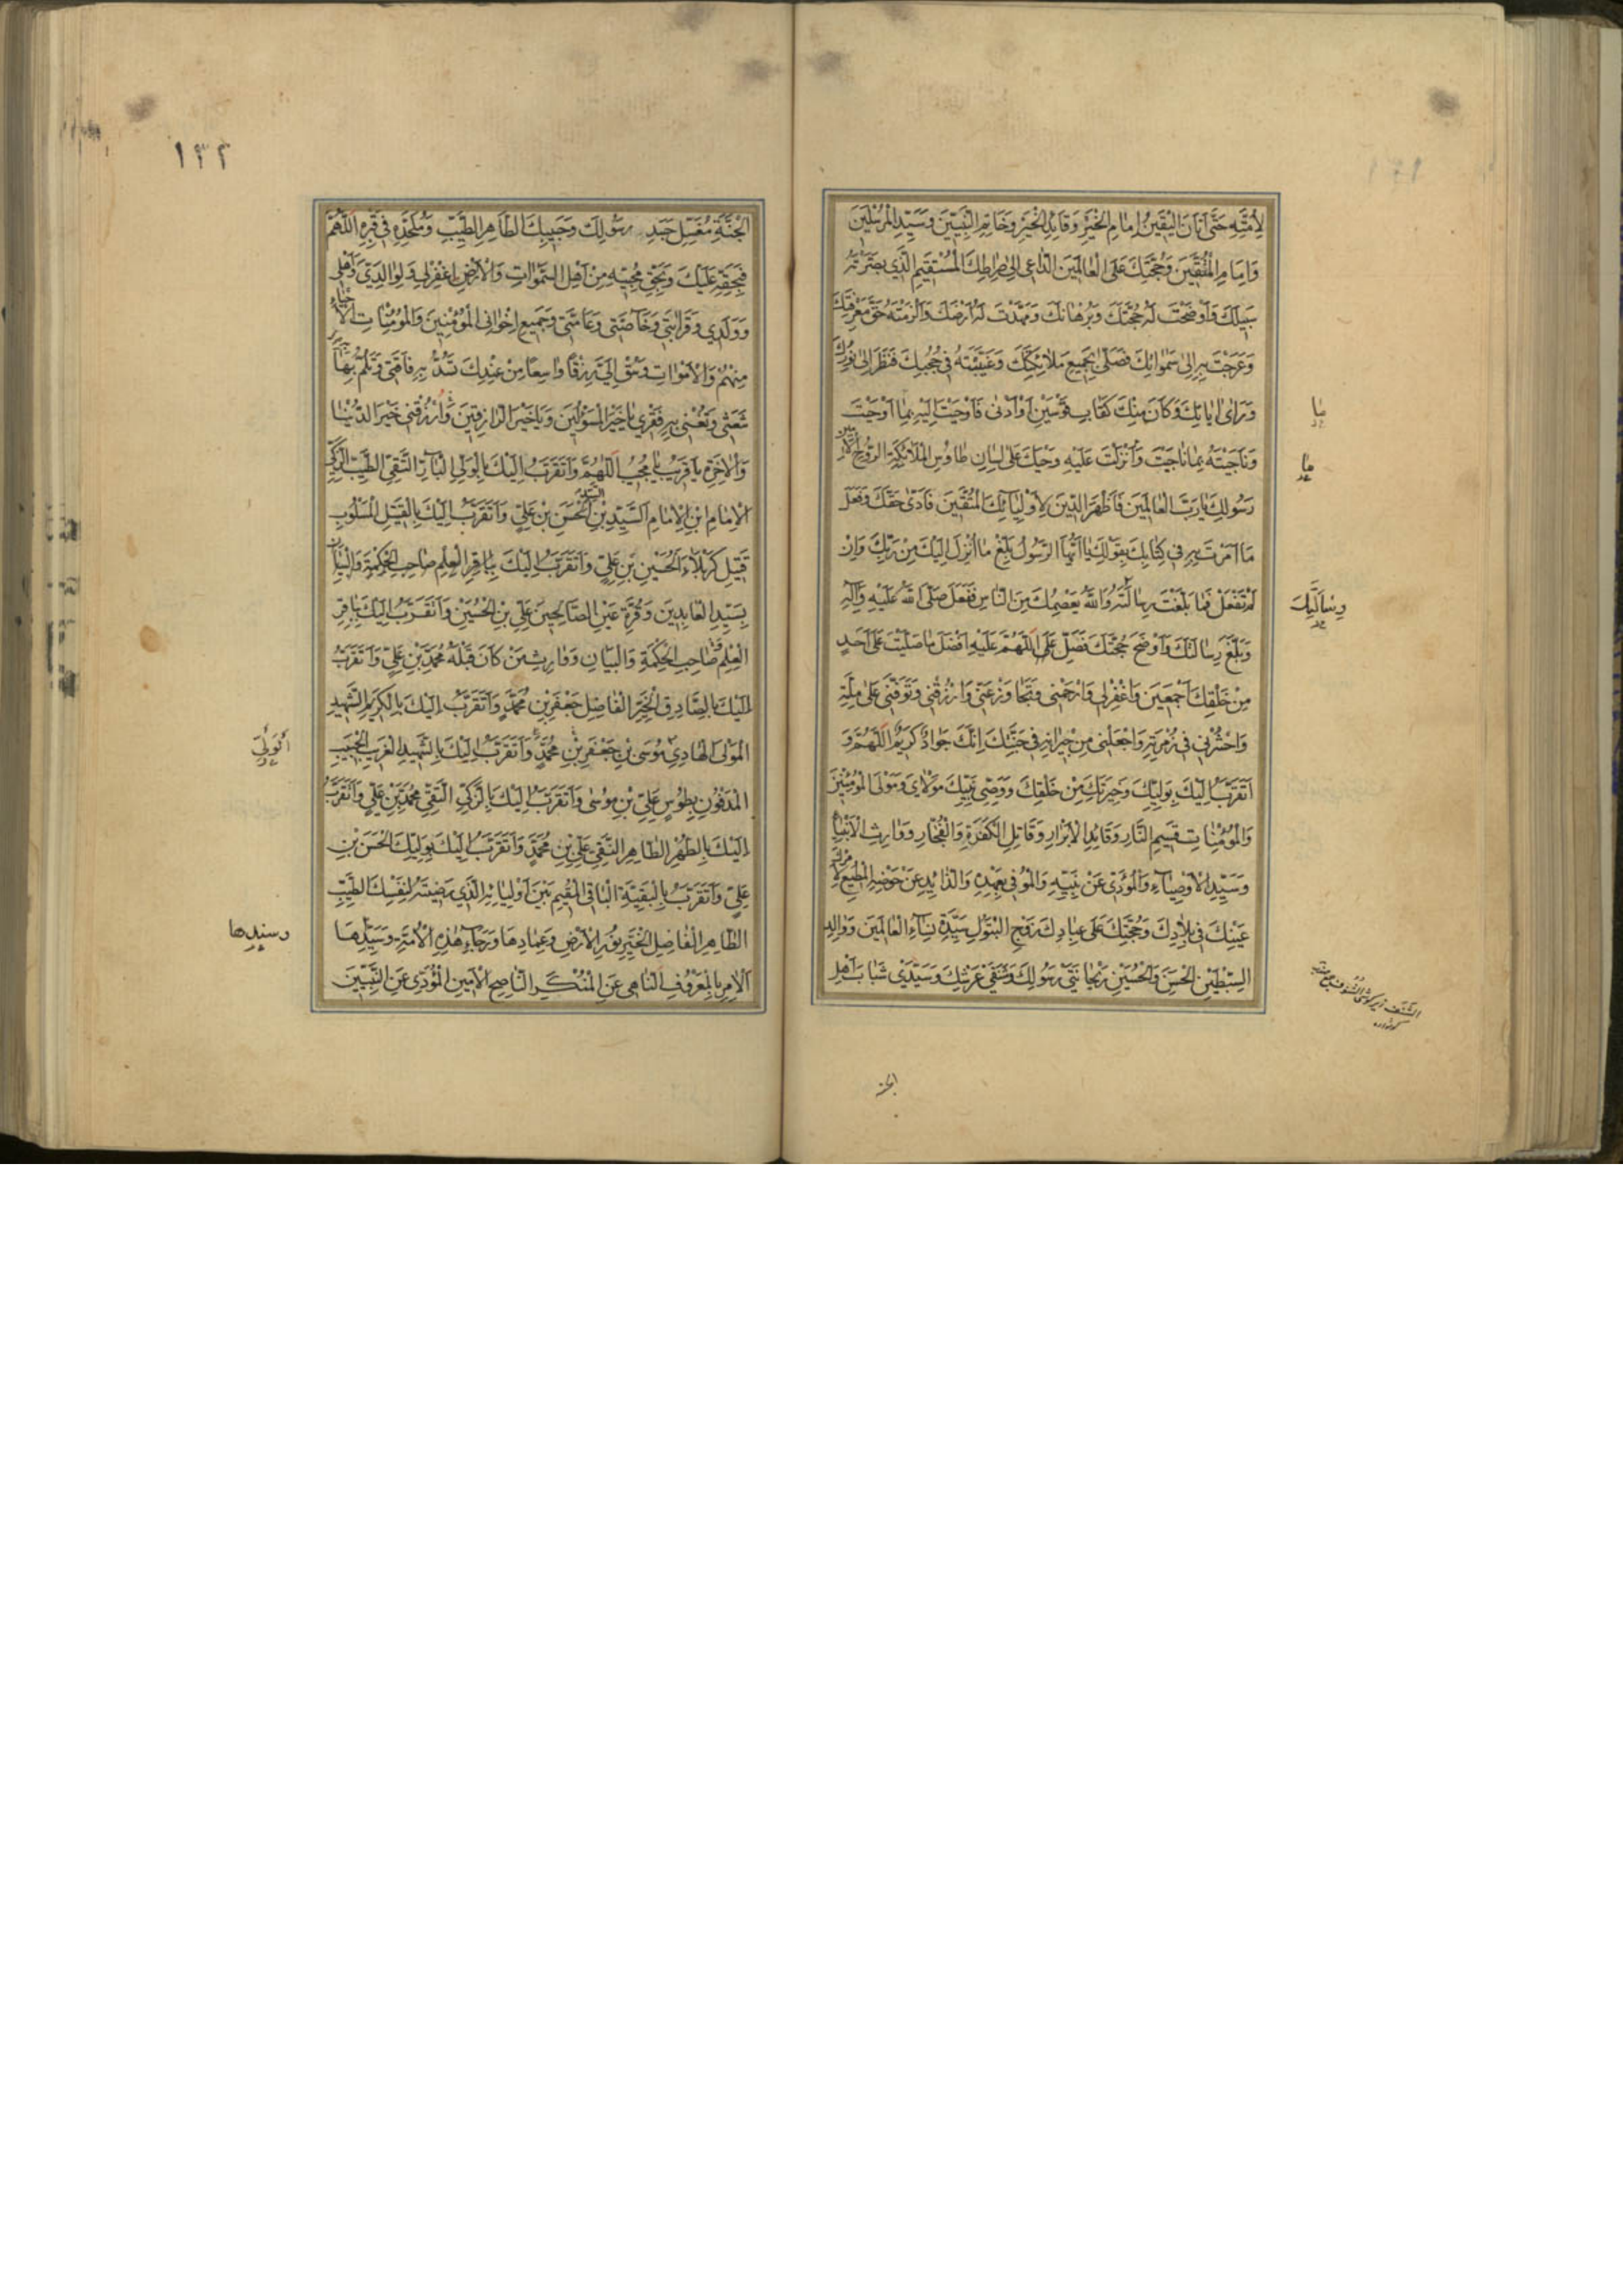 لِأُمَّتِهِ حَتّٰى أَتَانَ الْيَقِينُ إِمَامِ الْخَيْرِ وَقَائِدِ الْخَيْرِ وَخَاتِمِ النَّبِيِّينَ وَسَيِّدِ الْمُرْسَلِينَ
وَإِمَامِ الْمُتَّقِينَ وَحُجَّتِكَ عَلَى الْعَالَمِينَ الدَّاعِي إِلىٰ صِرَاطِكَ الْمُسْتَقِيمِ الَّذِي بَصَّرْتَهُ
سَبِيلَكَ وَأَوْضَحْتَ لَهُ حُجَّتَكَ وَبُرْهَانَكَ وَمَهَّدْتَ لَهُ أَرْضَكَ وَأَلْزَمْتَهُ حَقَّ مَعْرِفَتِكَ
وَعَرَجْتَ بِهِ إِلىٰ سَمٰوَاتِكَ فَصَلّٰى بِجَمِيعِ مَلَائِكَتِكَ وَغَيَّبْتَهُ فِي حُجُبِكَ فَنَظَرَ إِلىٰ نُورِكَ
وَرَأىٰ اٰيَاتِكَ وَكَانَ مِنْكَ كَقَابِ قَوْسَيْنِ أَوْ أَدْنىٰ فَأَوْحَيْتَ إِلَيْهِ بِمَا أَوْحَيْتَ
وَنَاجَيْتَهُ بِمَا نَاجَيْتَ وَأَنْزَلْتَ عَلَيْهِ وَحْيَكَ عَلىٰ لِسَانِ طَاوُسِ الْمَلَائِكَةِ الرُّوحِ الْأَمِينِ
رَسُولِكَ يَا رَبَّ الْعَالَمِينَ فَأَظْهَرَ الدِّينَ لِأَوْلِيَائِكَ الْمُتَّقِينَ فَأَدّىٰ حَقَّكَ وَفَعَلَ
مَا أَمَرْتَ بِهِ فِي كِتَابِكَ بِقَوْلِكَ يَا أَيُّهَا الرَّسُولُ بَلِّغْ مَا أُنْزِلَ إِلَيْكَ مِنْ رَبِّكَ وَإِنْ
لَمْ تَفْعَلْ فَمَا بَلَّغْتَ رِسَالَتَهُ وَاللّٰهُ يَعْصِمُكَ مِنَ النَّاسِ فَفَعَلَ صَلَّى اللّٰهُ عَلَيْهِ وَاٰلِهِ
وَبَلَّغَ رِسَالَتَكَ وَأَوْضَحَ حُجَّتَكَ فَصَلِّ اللّٰهُمَّ عَلَيْهِ أَفْضَلَ مَا صَلَّيْتَ عَلىٰ أَحَدٍ
مِنْ خَلْقِكَ أَجْمَعِينَ وَاغْفِرْلِي وَارْحَمْنِي وَتَجَاوَزْ عَنِّي وَارْزُقْنِي وَتَوَفَّنِي عَلىٰ مِلَّتِهِ
وَاحْشُرْنِي فِي زُمْرَتِهِ وَاجْعَلْنِي مِنْ جِيرَانِهِ فِي جَنَّتِكَ إِنَّكَ جَوَادٌ كَرِيمٌ اللّٰهُمَّ وَ
أَتَقَرَّبُ إِلَيْكَ بِوَلِيِّكَ وَخِيَرَتِكَ مِنْ خَلْقِكَ وَوَصِيِّ نَبِيِّكَ مَوْلَايَ وَمَوْلَى الْمُؤْمِنِينَ
وَالْمُؤْمِنَاتِ قَسِيمِ النَّارِ وَقَائِدِ الْأَبْرَارِ وَقَاتِلِ الْكَفَرَةِ وَالْفُجَّارِ وَوَارِثِ الْأَنْبِيَاءِ
وَسَيِّدِ الْأَوْصِيَاءِ وَالْمُؤَدِّي عَنْ نَبِيِّهِ وَالْمُوفِي بِعَهْدِهِ وَالذَّائِدِ عَنْ حَوْضِهِ الْمُطِيعِ لِأَمْرِكَ
عَيْنِكَ فِي بِلَادِكَ وَحُجَّتِكَ عَلىٰ عِبَادِكَ زَوْجِ الْبَتُولِ سَيِّدَةِ نِسَاءِ الْعَالَمِينَ وَوَالِدِ
السِّبْطَيْنِ الْحَسَنِ وَالْحُسَيْنِ رَيْحَانَتَيْ رَسُولِكَ وَشَنَفَيْ عَرْشِكَ وَسَيِّدَيْ شَبَابِ أَهْلِ
مَا
مَا
رِسَالَتِكَ
الجنة
١٣٢
الْجَنَّةِ مُغَسِّلِ جَسَدِ رَسُولِكَ وَحَبِيبِكَ الطَّاهِرِ الطَّيِّبِ وَمُلْحِدِهِ فِي قَبْرِهِ اللّٰهُمَّ
فَبِحَقِّهِ عَلَيْكَ وَبِحَقِّ مُحِبِّيهِ مِنْ أَهْلِ السَّمٰوَاتِ وَالْأَرْضِ اغْفِرْلِي وَلِوَالِدَيَّ وَأَهْلِي
وَوَلَدِي وَقَرَابَتِي وَخَاصَّتِي وَعَامَّتِي وَجَمِيعِ إِخْوَانِي الْمُؤْمِنِينَ وَالْمُؤْمِنَاتِ الْأَحْيَاءِ
مِنْهُمْ وَالْأَمْوَاتِ وَسُقْ إِلَيَّ رِزْقًا وَاسِعًا مِنْ عِنْدِكَ تَسُدُّ بِهِ فَاقَتِي وَتَلُمُّ بِهِ
شَعَثِي وَتُغْنِي بِهِ فَقْرِي يَا خَيْرَ الْمَسْؤُلِينَ وَيَا خَيْرَ الرَّازِقِينَ وَارْزُقْنِي خَيْرَ الدُّنْيَا
وَالْاٰخِرَةِ يَا قَرِيبُ يَا مُجِيبُ اللّٰهُمَّ وَأَتَقَرَّبُ إِلَيْكَ بِالْوَلِيِّ الْبَارِّ التَّقِيِّ الطَّيِّبِ الزَّكِيِّ
الْإِمَامِ ابْنِ الْإِمَامِ السَّيِّدِ بْنِ السَّيِّدِ الْحَسَنِ بْنِ عَلِيٍّ وَأَتَقَرَّبُ إِلَيْكَ بِالْقَتِيلِ الْمَسْلُوبِ
قَتِيلِ كَرْبَلَاءَ الْحُسَيْنِ بْنِ عَلِيٍّ وَأَتَقَرَّبُ إِلَيْكَ بِبَاقِرِ الْعِلْمِ صَاحِبِ الْحِكْمَةِ وَالْبَيَانِ
بِسَيِّدِ الْعَابِدِينَ وَقُرَّةِ عَيْنِ الصَّالِحِينَ عَلِيِّ بْنِ الْحُسَيْنِ وَأَتَقَرَّبُ إِلَيْكَ بِبَاقِرِ
الْعِلْمِ صَاحِبِ الْحِكْمَةِ وَالْبَيَانِ وَوَارِثِ مَنْ كَانَ قَبْلَهُ مُحَمَّدِ بْنِ عَلِيٍّ وَأَتَقَرَّبُ
إِلَيْكَ بِالصَّادِقِ الْخَيِّرِ الْفَاضِلِ جَعْفَرِ بْنِ مُحَمَّدٍ وَأَتَقَرَّبُ إِلَيْكَ بِالْكَرِيمِ الشَّهِيدِ
الْمَوْلَى الْهَادِي مُوسَى بْنِ جَعْفَرِ بْنِ مُحَمَّدٍ وَأَتَقَرَّبُ إِلَيْكَ بِالشَّهِيدِ الْغَرِيبِ الْحَبِيبِ
الْمَدْفُونِ بِطُوسٍ عَلِيِّ بْنِ مُوسٰى وَأَتَقَرَّبُ إِلَيْكَ بِالزَّكِيِّ التَّقِيِّ مُحَمَّدِ بْنِ عَلِيٍّ وَأَتَقَرَّبُ
إِلَيْكَ بِالطُّهْرِ الطَّاهِرِ النَّقِيِّ عَلِيِّ بْنِ مُحَمَّدٍ وَأَتَقَرَّبُ إِلَيْكَ بِوَلِيِّكَ الْحَسَنِ بْنِ
عَلِيٍّ وَأَتَقَرَّبُ بِالْبَقِيَّةِ الْبَاقِي الْمُقِيمِ بَيْنَ أَوْلِيَائِهِ الَّذِي رَضِيتَهُ لِنَفْسِكَ الطَّيِّبِ
الطَّاهِرِ الْفَاضِلِ الْخَيِّرِ نُورِ الْأَرْضِ وَعِمَادِهَا وَرَجَاءِ هٰذِهِ الْأُمَّةِ وَسَيِّدِهَا
الْاٰمِرِ بِالْمَعْرُوفِ النَّاهِي عَنِ الْمُنْكَرِ النَّاصِحِ الْأَمِينِ الْمُؤَدِّي عَنِ النَّبِيِّينَ
وسندها